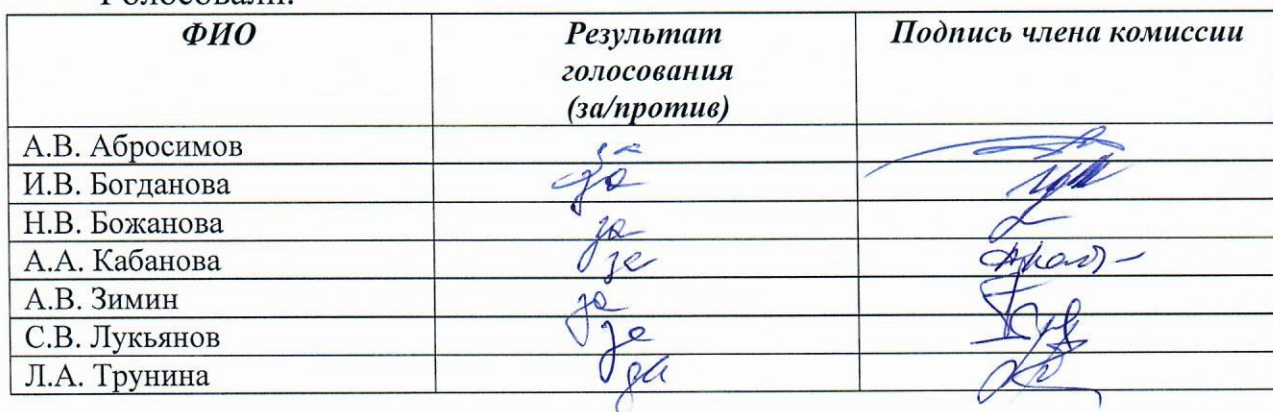 Голосовали:
ФИО Результат голосования (за/против) Подпись члена комиссии
А.В. Абросимов за
И.В. Богданова за
Н.В. Божанова за
А.А. Кабанова за
А.В. Зимин за
С.В. Лукьянов за
Л.А. Трунина за